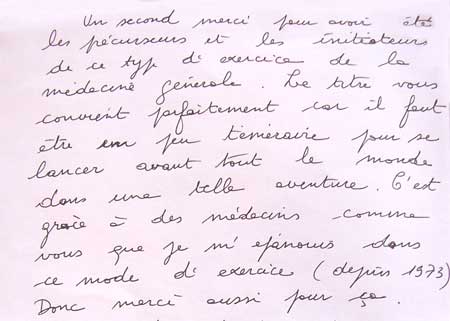 Un second merci pour avoir été
les précurseurs et les initiateurs
de ce type d'exercice de la
médecine générale. Le titre vous
convient parfaitement car il faut
être un peu téméraire pour se
lancer avant tout le monde
dans une telle aventure. C'est
grâce à des médecins comme
vous que je m'épanouis dans
ce mode d'exercice (depuis 1973)
Donc merci aussi pour ça.